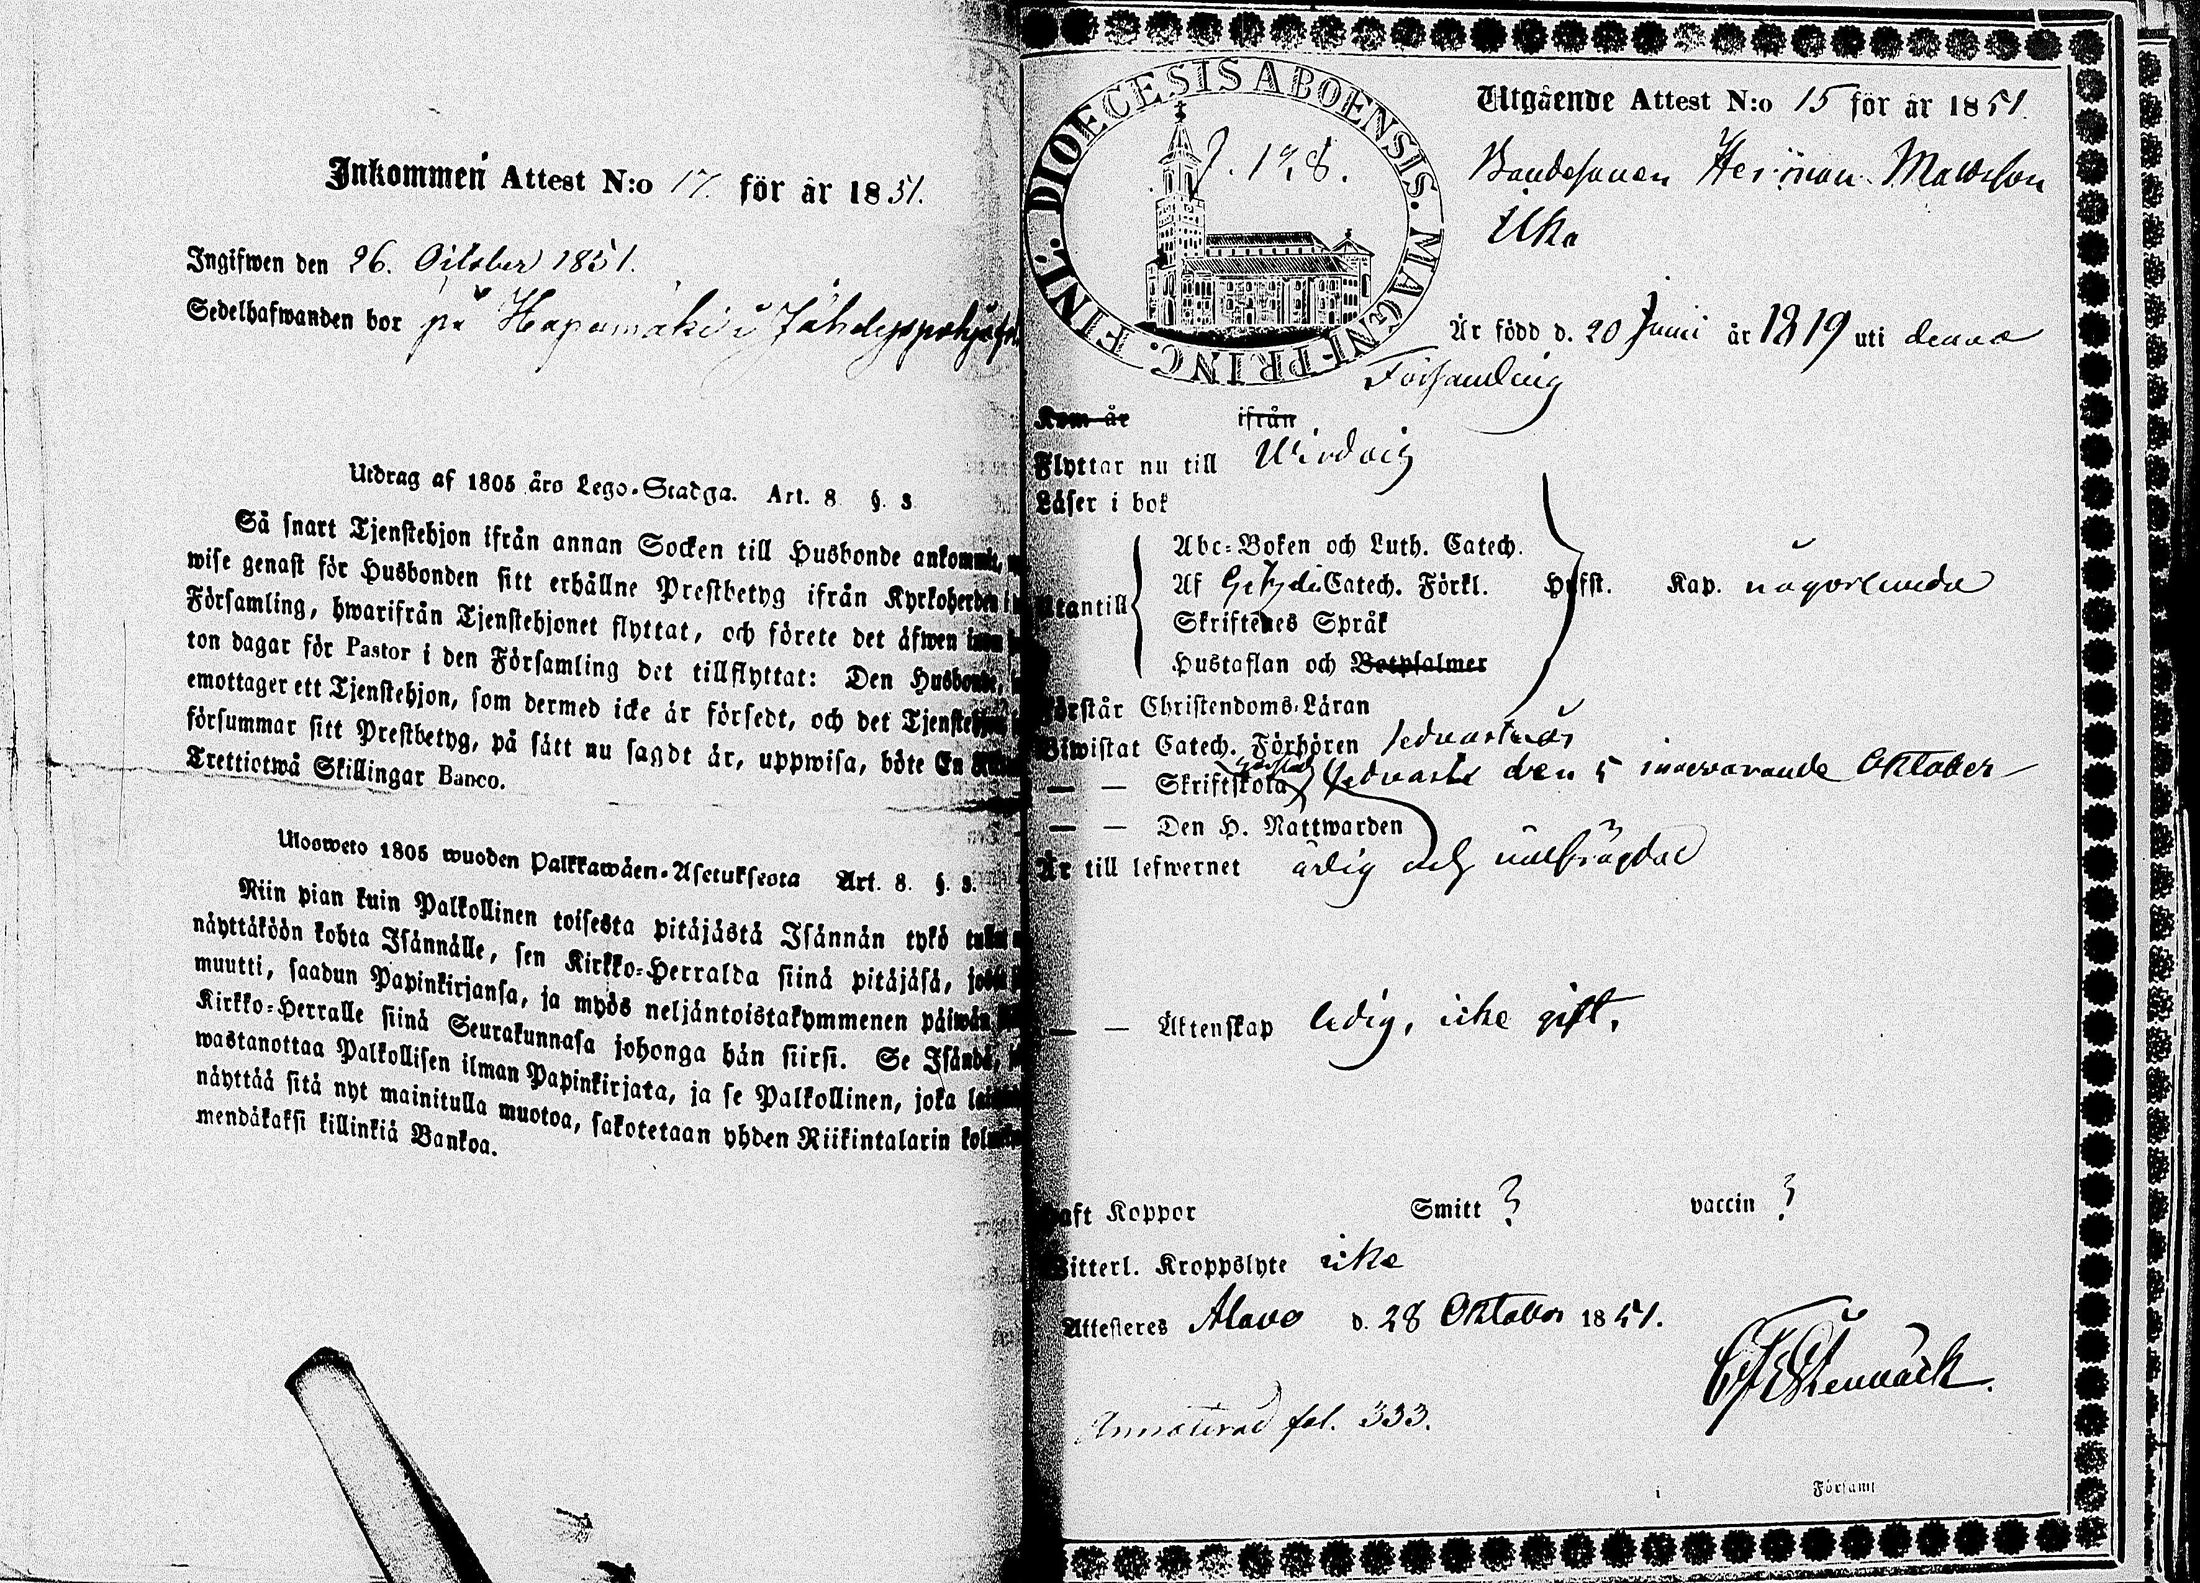 Inkommen Attest N:o 17. för år 1851.
Ingifwen den 26. October 1851.
Sedelhafwanden bor på Hapamäki i Jähdyspohja
Utdrag af 1805 åro Lego-Stadga. Art. 8 §. 3
Så snart Tjenstehjon ifrån annan Socken till Husbonde ankommit,
wise genast för Husbonden sitt erhållne Prestbetyg ifrån Kyrkoherden i
Församling, hwarifrån Tjenstehjonet flyttat, och förete det äfwen inom
ton dagar för Pastor i den Församling det tillflyttat: Den Husbonde,
emottager ett Tjenstehjon, som dermed icke är försedt, och det Tjenstehjon
försummar sitt Prestbetyg, på sätt nu sagdt är, uppwisa, böte En
Trettiotwå Skillingar Banco.
Ulosweto 1805 wuoden Palkkawäen-Asetuksesta Art. 8. §. 3.
Niin pian kuin Palkollinen toisesta pitäjästä Isännän tykö
näyttäköön kohta Isännälle, sen Kirkko-Herralda siinä pitäjäsä,
muutti, saadun Papinkirjansa, ja myös neljäntoistakymmenen päiwän
Kirkko-Herralle siinä Seurakunnasa johonga hän siirsi. Se Isändä,
wastanottaa Palkollisen ilman Papinkirjata, ja se Palkollinen, joka
näyttää sitä nyt mainitulla muotoa, sakotetaan yhden Riikintalarin
mendäkaksi killinkiä Bankoa.
DIOECESIS ABOENSIS. MAGNI PRINC. FINL.
p. 128.
Utgående Attest N:o 15 för år 1851.
Bondesonen Herman Mattsson
Uka
Är född d. 20 Juni år 1819 uti denna
Församling
Kom år ifrån
Flyttar nu till Wirdois
Läser i bok
Abc-Boken och Luth. Catech.
Utantill Af Catech. Förkl. Hufst. Kap. någorlunda
Skriftenes Språk
Hustaflan och Botpsalmer
Förstår Christendoms-Läran
Biwistat Catech. Förhören sednast
— — Skriftskola sednast den 5 innevarande Oktober
— — Den H. Nattwarden
Är till lefwernet ärlig och välfrägdad
— — Äktenskap ledig, icke gift.
Haft Koppor Smitt ? vaccin ?
Witterl. Kroppslyte icke
Attesteres Alavo d. 28 Oktober 1851.
Stenbäck.
Annoterad fol. 333.
Församl